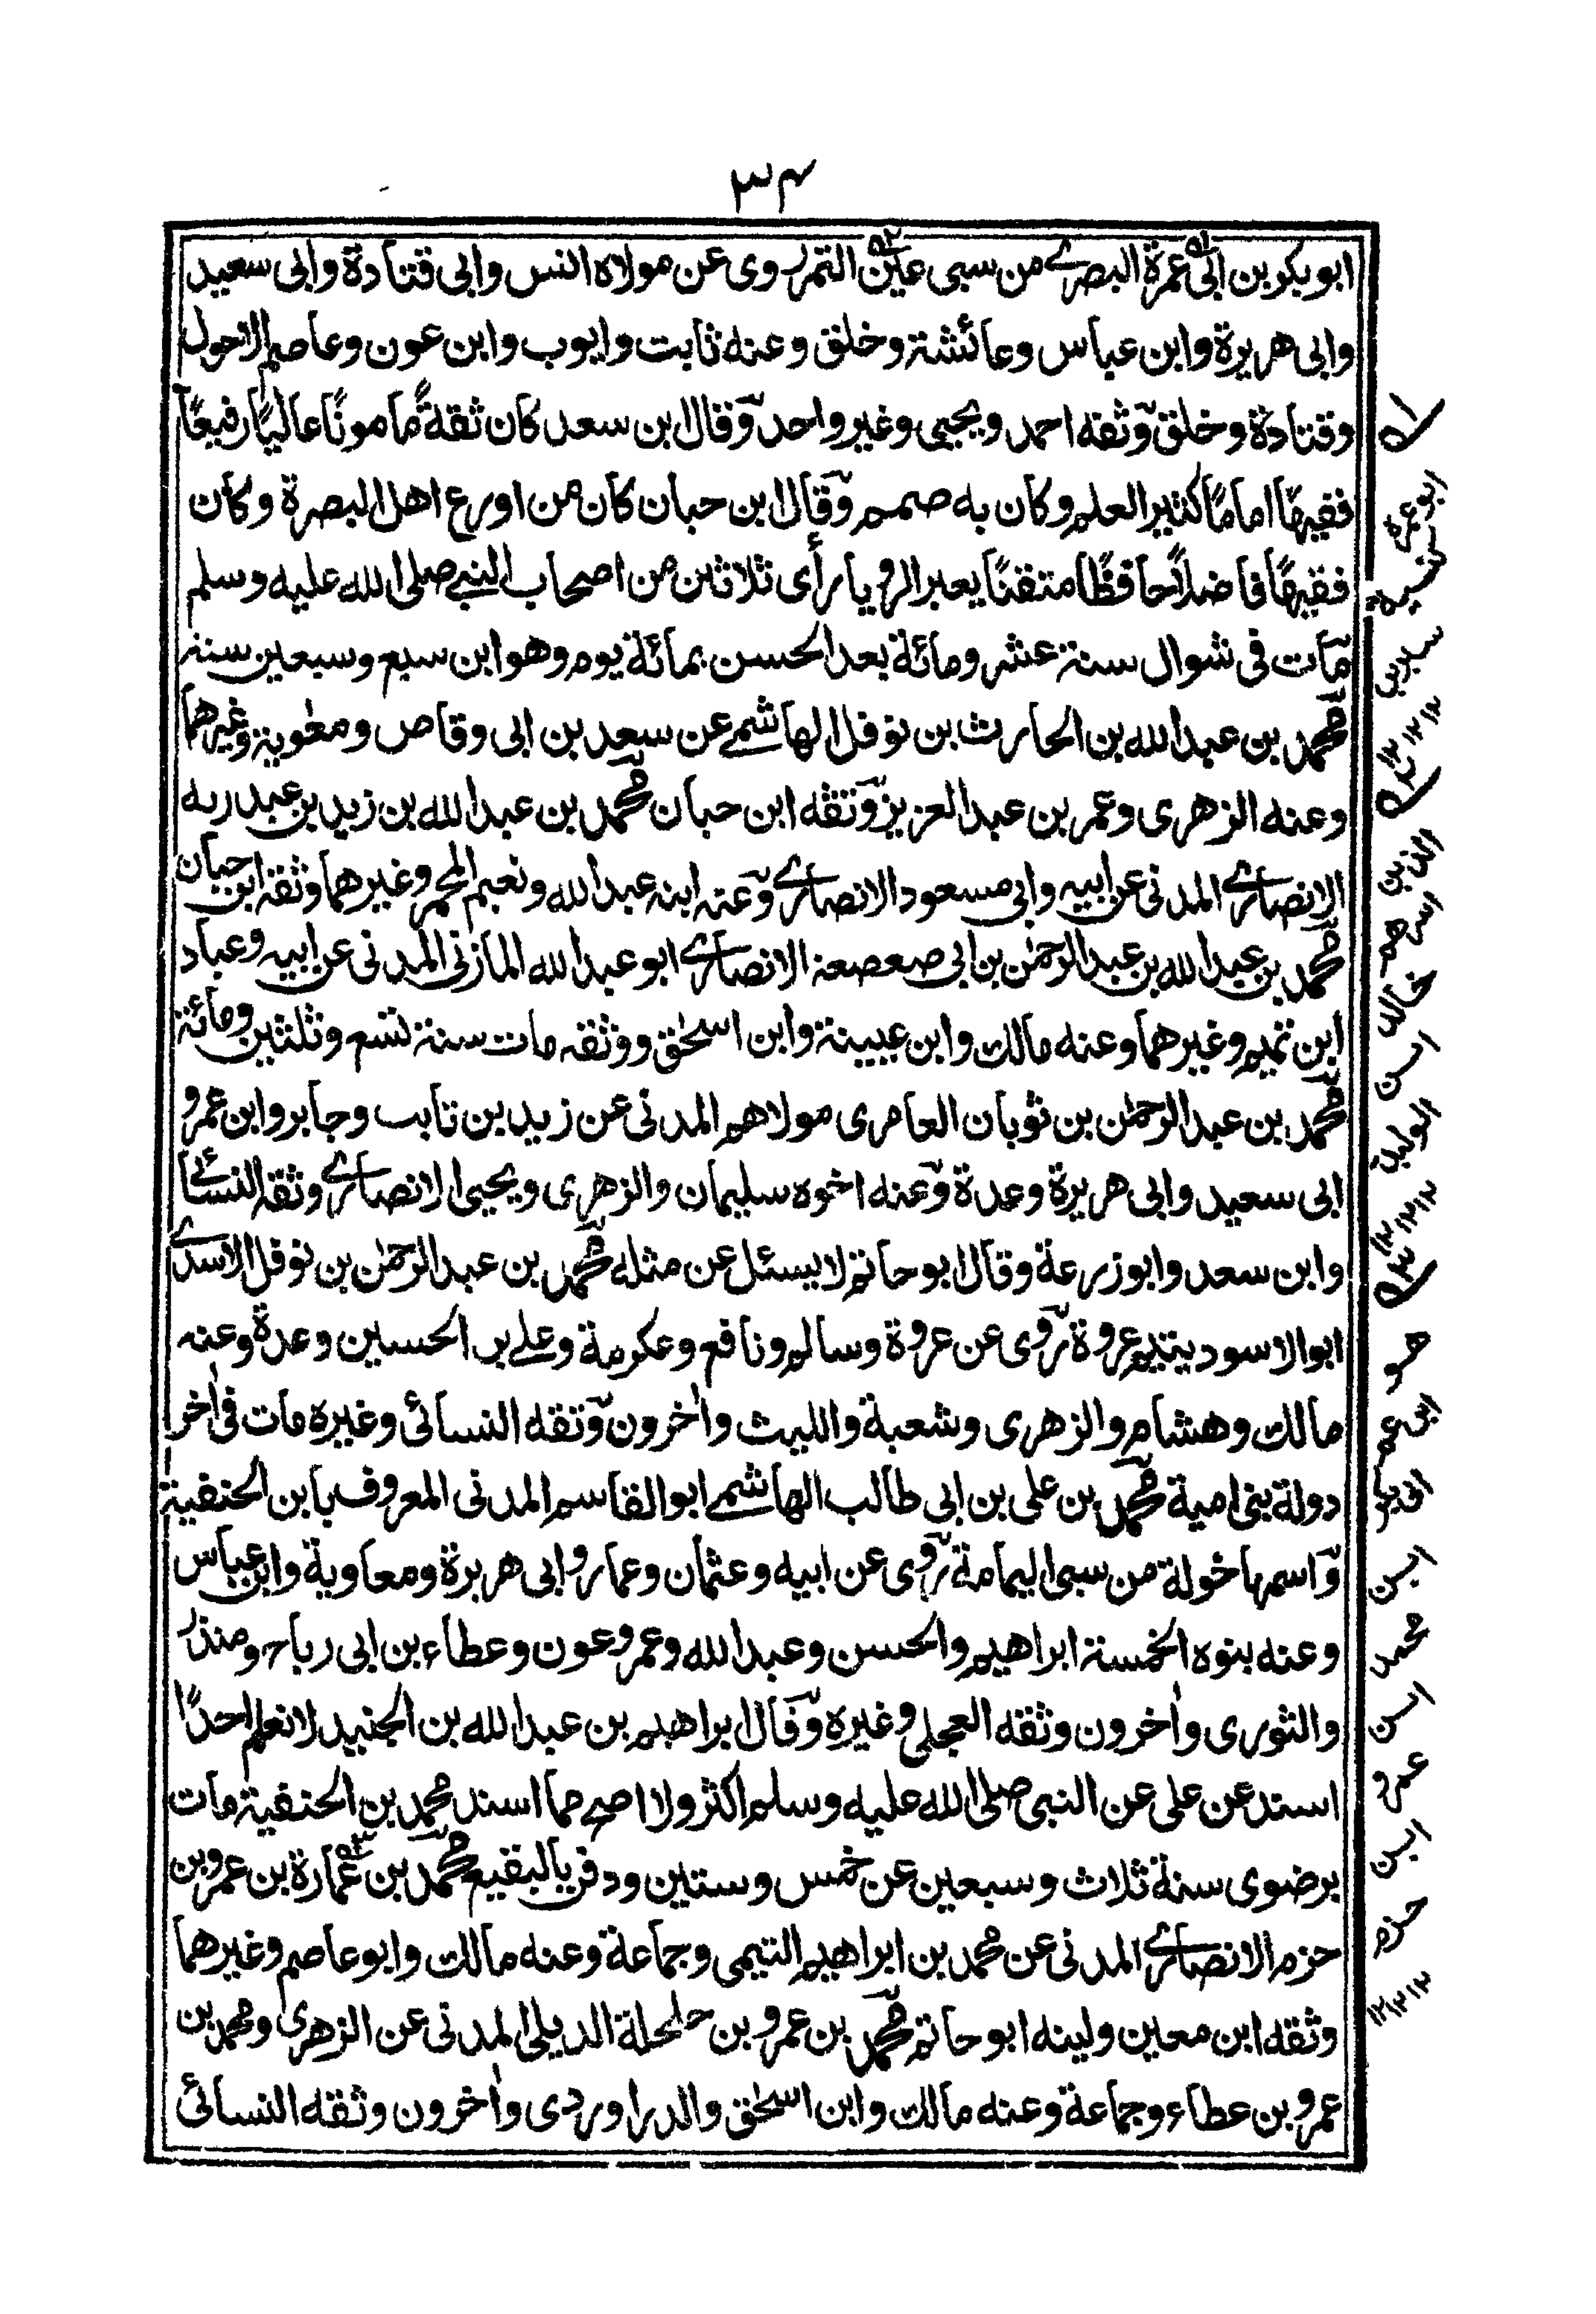 ٣٤
ابو بكر بن ابى عمرة البصرى من سبى عين التمر روى عن مولاه انس وابى قتادة وابى سعيد
وابى هريرة وابن عباس وعائشة وخلق وعنه ثابت وايوب وابن عون وعاصم الاحول
وقتادة وخلق وثقه احمد ويحيى وغير واحد وقال ابن سعد كان ثقةً مامونًا عاليًا رفيعًا
فقيهًا امامًا كثير العلم وكان به صمم وقال ابن حبان كان من اورع اهل البصرة وكان
فقيهًا فاضلاً حافظًا متقنًا يعبر الرؤيا رأى ثلاثين من اصحاب النبى صلى الله عليه وسلم
مات فى شوال سنة عشر ومائة بعد الحسن بمائة يوم وهو ابن سبع وسبعين سنة
محمد بن عبد الله بن الحارث بن نوفل الهاشمى عن سعد بن ابى وقاص ومعٰوية وغيرهما
وعنه الزهرى وعمر بن عبد العزيز وثقه ابن حبان محمد بن عبد الله بن زيد بن عبد ربه
الانصارى المدنى عن ابيه وابى مسعود الانصارى وعنه ابنه عبد الله ونعيم المجمر وغيرهما وثقه ابن حبان
محمد بن عبد الله بن عبد الرحمٰن بن ابى صعصعة الانصارى ابو عبد الله المازنى المدنى عن ابيه وعباد
ابن تميم وغيرهما وعنه مالك وابن عيينة وابن اسحٰق ووثقه مات سنة تسع وثلثين ومائة
محمد بن عبد الرحمٰن بن ثوبان العامرى مولاهم المدنى عن زيد بن ثابت وجابر وابن عمرو
ابى سعيد وابى هريرة وعدة وعنه اخوه سليمان والزهرى ويحيى الانصارى وثقه النسائى
وابن سعد وابو زرعة وقال ابو حاتم لا يسئل عن مثله محمد بن عبد الرحمٰن بن نوفل الاسدى
ابو الاسود يتيم عروة روى عن عروة وسالم ونافع وعكرمة وعلى بن الحسين وعدة وعنه
مالك وهشام والزهرى وشعبة والليث واٰخرون وثقه النسائى وغيره مات فى اٰخر
دولة بنى امية محمد بن على بن ابى طالب الهاشمى ابو القاسم المدنى المعروف بابن الحنفية
واسمها خولة من سبى اليمامة روى عن ابيه وعثمان وعمار وابى هريرة ومعاوية وابن عباس
وعنه بنوه الخمسة ابراهيم والحسن وعبد الله وعمر وعون وعطاء بن ابى رباح ومنذر
والثورى واٰخرون وثقه العجلى وغيره وقال ابراهيم بن عبد الله بن الجنيد لا نعلم احدًا
اسند عن على عن النبى صلى الله عليه وسلم اكثر ولا اصح مما اسند محمد بن الحنفية مات
برضوى سنة ثلاث وسبعين عن خمس وستين ودفن بالبقيع محمد بن عمارة بن عمرو بن
حزم الانصارى المدنى عن محمد بن ابراهيم التيمى وجماعة وعنه مالك وابو عاصم وغيرهما
وثقه ابن معين ولينه ابو حاتم محمد بن عمرو بن حلحلة الديلى المدنى عن الزهرى ومحمد بن
عمرو بن عطاء وجماعة وعنه مالك وابن اسحٰق والدراوردى واٰخرون وثقه النسائى
ابو عمرة
سيرين
الذين
اسرهم
خالد
ابن
الوليد
هو
ابن عم
ابن
محمد
ابن
عمرو
ابن
حزم